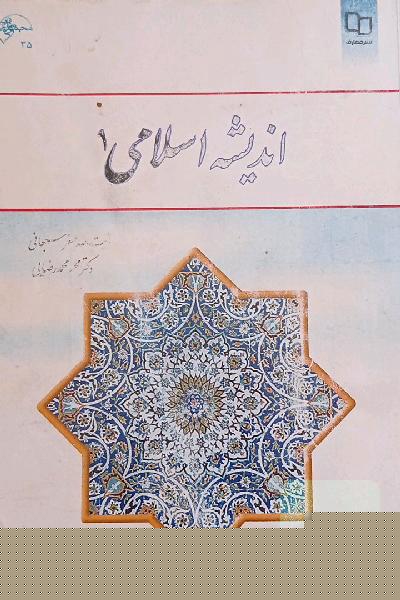 ۳۵
نشر معارف
اندیشه اسلامی ۱
سبحانی
دکتر محمد محمدرضایی